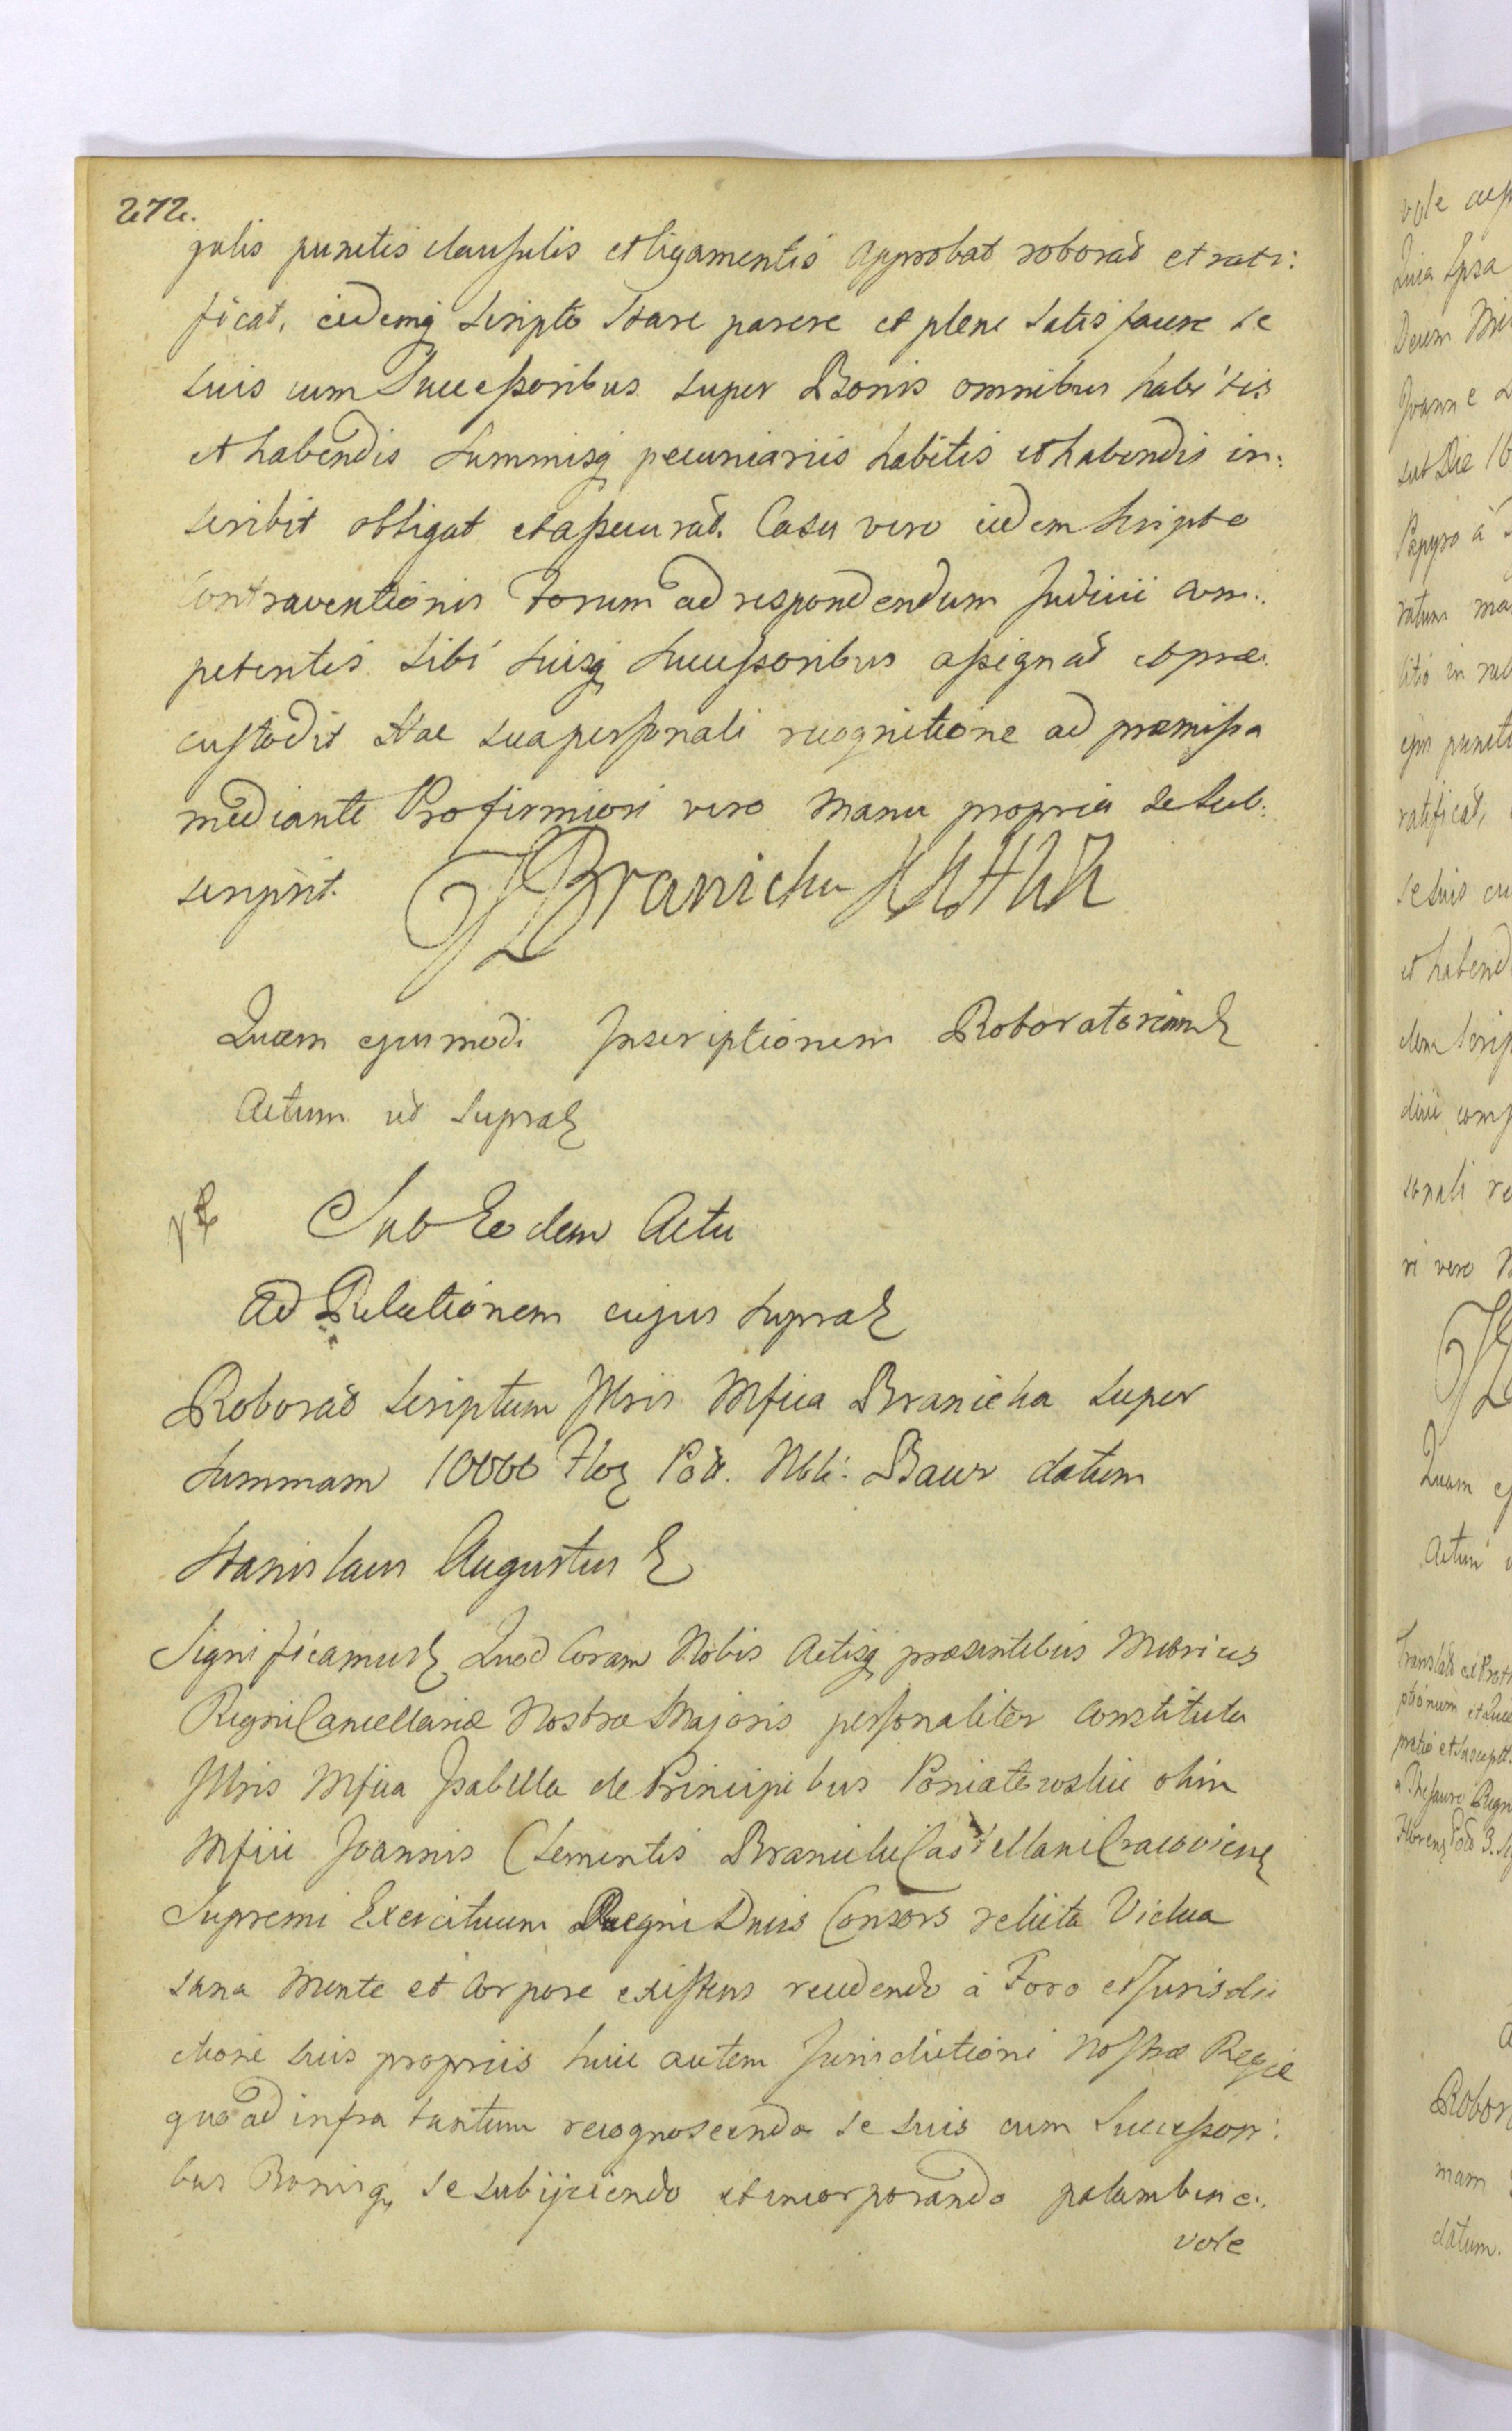 272.
gulis punctis clausulis et ligamentis approbat roborat et rati:
ficat, eidemq scripto stare parere et plene satisfacere se
suis cum Successoribus super Bonis omnibus habitis
et habendis summisq pecuniariis habitis et habendis in:
scribit obligat et assecurat. Casu vero eidem scripto
contraventionis Forum ad respondendum Judicii com:
petentis sibi suisq successoribus assignat et præ:
custodit Hac sua personali recognitione ad præmissa
mediante Pro firmiori vero manu propria se sub:
scripsit. Branicka KKHWK
Quam ejusmodi Inscriptionem Roboratoriam
Actum ut supra
Sub Eodem Actu
Ad Relationem cujus supra
Roborat scriptum Illris Mfica Branicka super
summam 10000 Flor Pol. Nbli. Baur datum
Stanislaus Augustus
Significamus Quod Coram Nobis Actisq præsentibus Metrices
Regni Cancellariæ Nostræ Majoris personaliter constituta
Illris Mfica Isabella de Principibus Poniatowskie olim
Mfici Joannis Clementis Branicki Castellani Cracovien
Supremi Exercituum Regni Ducis Consors relicta Vidua
sana mente et corpore existens recedendo à Foro et Jurisdi
ctione suis propriis huic autem Jurisdictioni Nostræ Regiæ
quo ad infra tantum recognoscenda se suis cum successori:
bus Bonisq, se subijciendo et incorporando palam bene:
vole
vole
Quia Ipsa
Joanne
sub Die 16
Papyro à
ratum
litio in
ejus puncti
ratificat,
se suis cu
et habend
dem scrip
dicii comp
sonali re
ri vero
Quam
Actum
Translat
Robor
mam
datum.